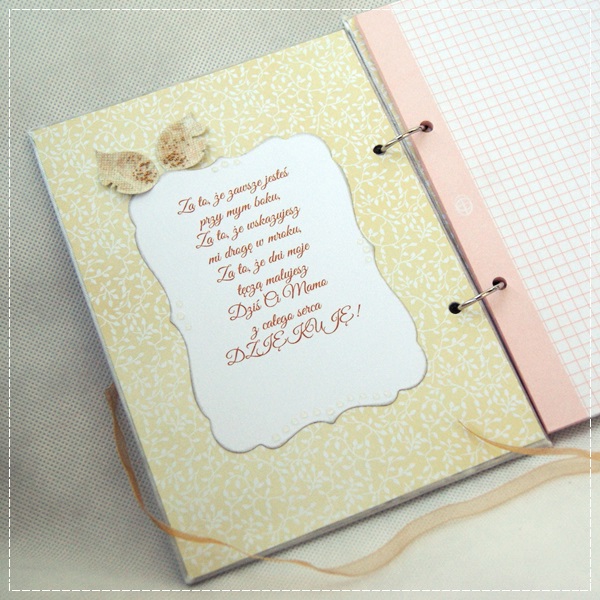 Za to, że zawsze jesteś
przy mym boku,
Za to, że wskazujesz
mi drogę w mroku,
Za to, że dni moje
tęczą malujesz
Dziś Ci Mamo
z całego serca
DZIĘKUJĘ!